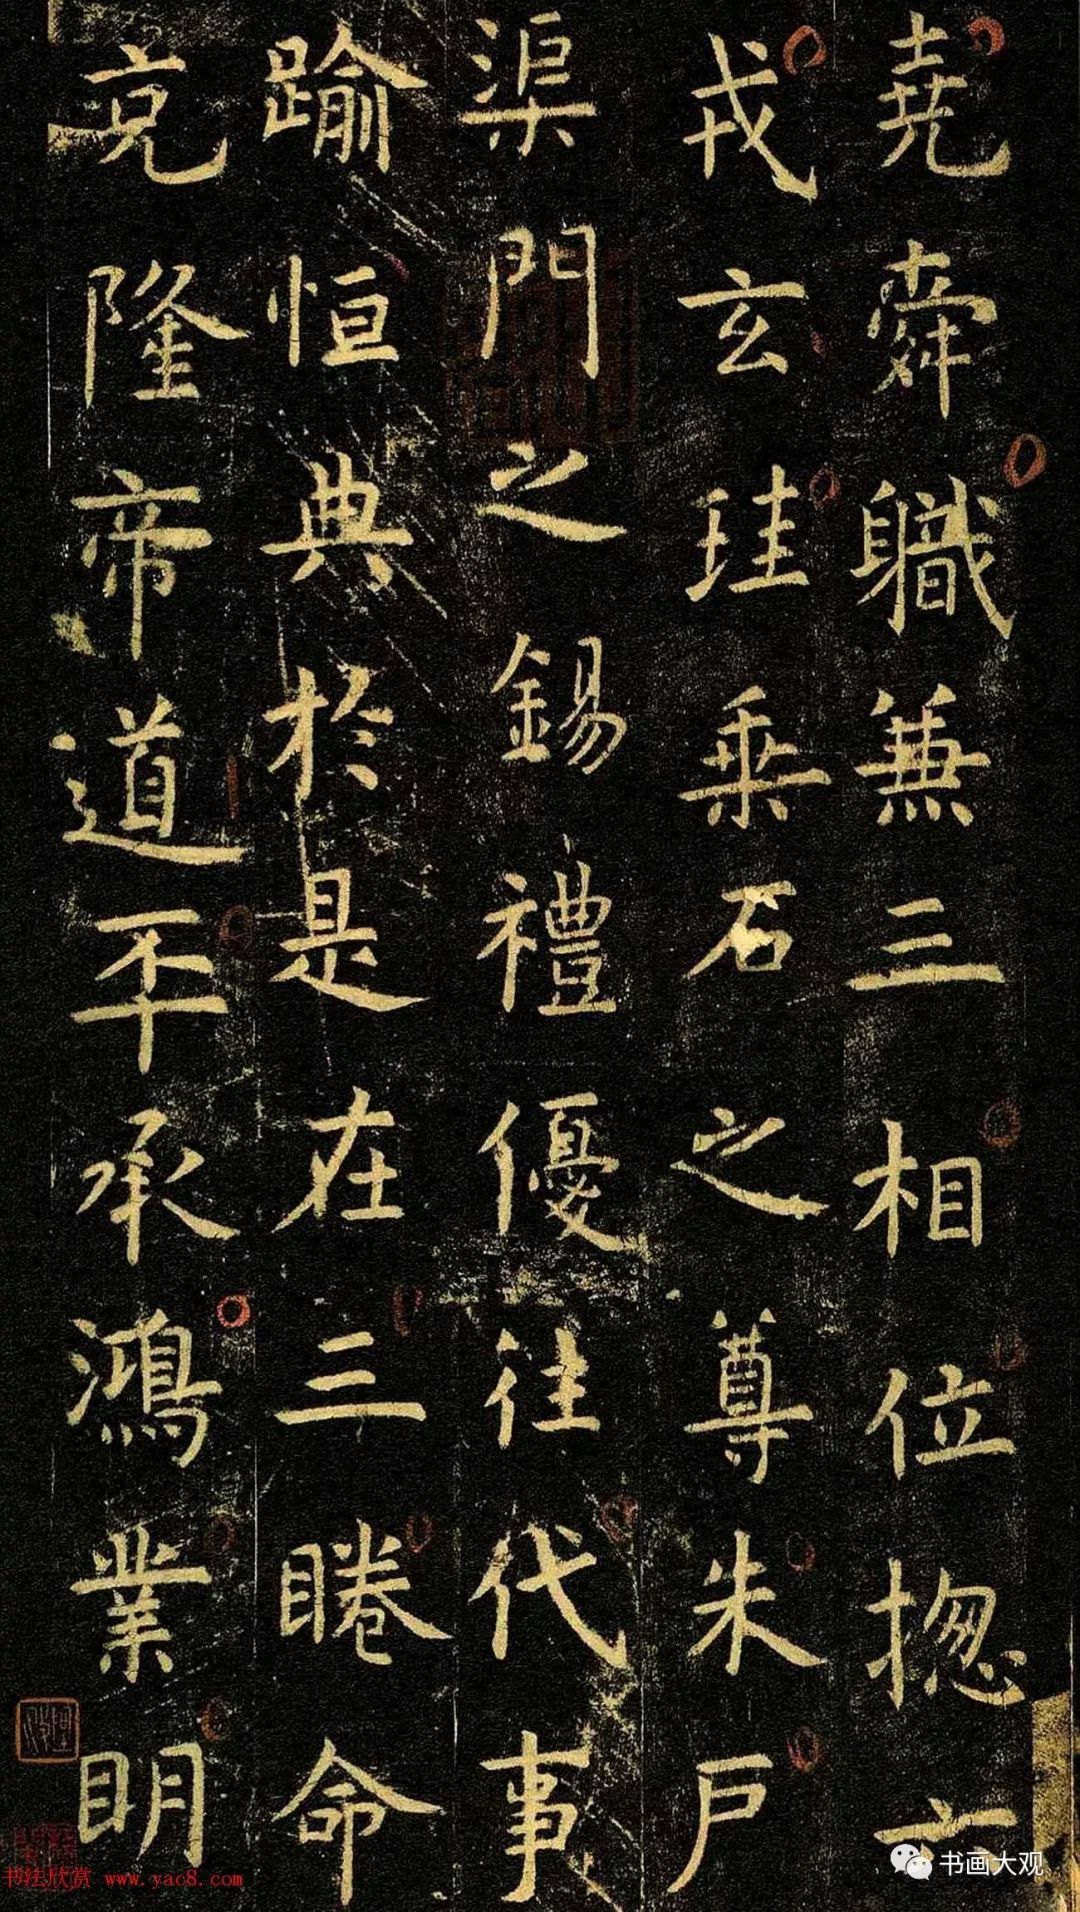 堯舜職兼三相位揔六
戎玄珪乘石之尊朱戶
渠門之錫禮優往代事
踰恒典於是在三眷命
克隆帝道丕承鴻業明
书画大观
书法欣赏 www.yac8.com